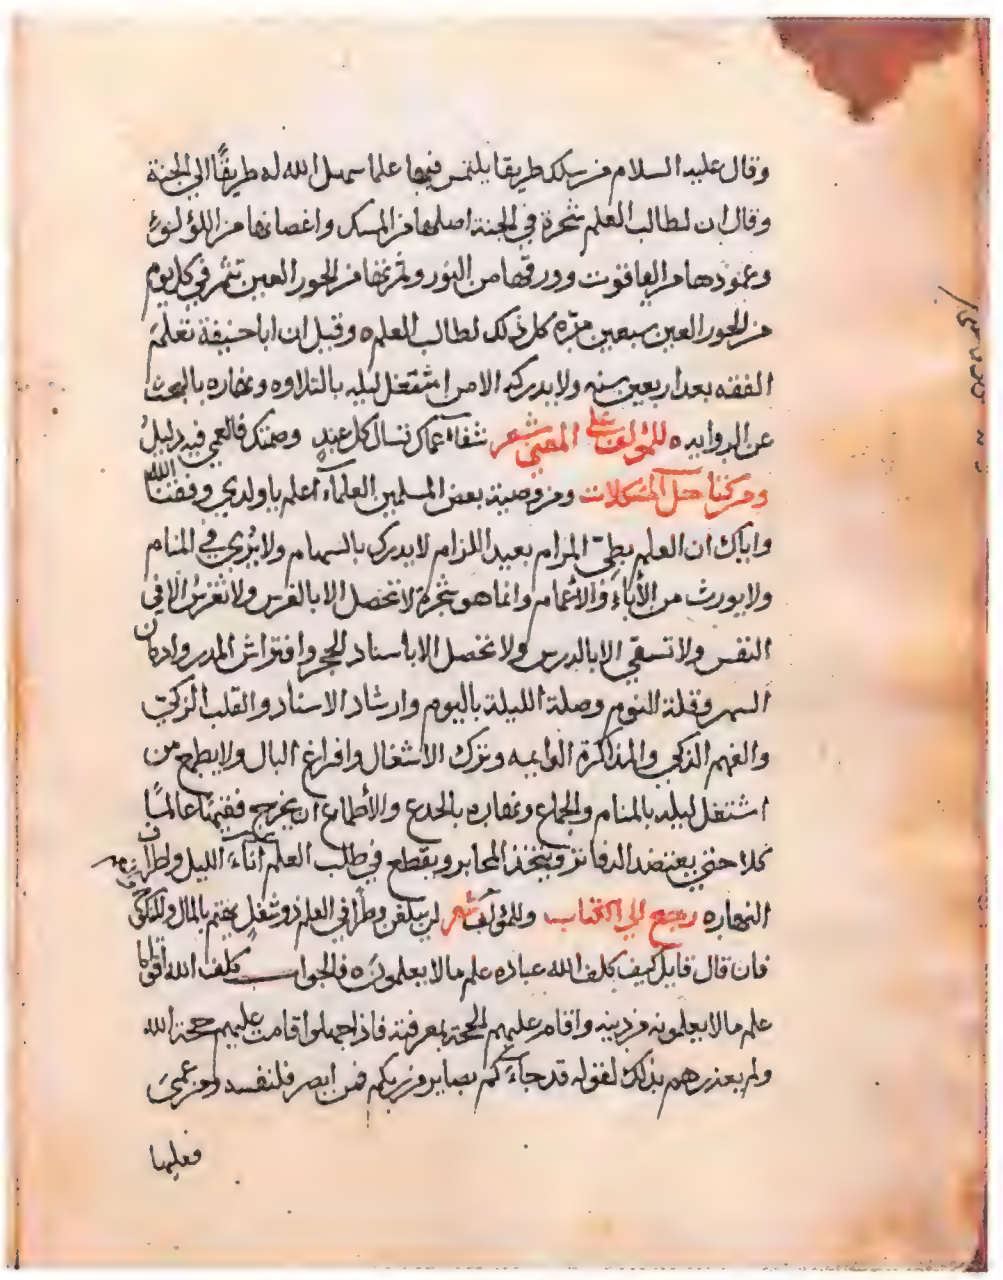 وقال عليه السلام من سلك طريقا يلتمس فيها علما سهل الله له طريقًا الي الجنة
وقال ان لطالب العلم شجرة في الجنة اصلها من المسك واغصانها من اللؤلؤ
وعمودها من الياقوت وورقها من النور وثمرتها من الحور العين تثمر في كل يوم
من الحور العين سبعين مرّة كل ذلك لطالب العلم ه وقيل ان ابا حنيفة تعلم
الفقه بعد اربعين سنه ولا يدركه الا من اشتغل ليله بالتلاوه ونهاره بالبحث
عن الروايه ه للمؤلف علي المعني شعر شفاء عماك تسال كل عبدٍ وصمتك فالعمي فيه دليلُ
ومن كتاب حل المشكلات ومن وصية بعض المسلمين العلماء اعلم يا ولدي وفقنا الله
واياك ان العلم بطيّ المرام بعيد المرام لا يدرك بالسهام ولا يُري في المنام
ولا يورث من الأباء والأعمام وانما هو شجرة لا تحصل الا بالغرس ولا تغرسُ الا في
النفس ولا تسقي الا بالدرس ولا تحصل الا باسناد الحجر وافتراش المدر وادمان
السهر وقلة النوم وصلة الليلة باليوم وارشاد الاستاد والقلب الزكيّ
والفهم الذكي والمذاكرة الدايمه وترك الاشغال وافراغ البال ولا يطمع من
اشتغل ليله بالمنام والجماع ونهاره بالخدع والأطماع ان يخرج فقيهًا عالمًا
كلا حتي يعتضد الدفاتر ويتخذ المحابر ويقطع في طلب العلم آناء الليل واطراف
النهار ه رجع الي الكتاب وللمؤلف شعر لن يبلغن وطرا في العلم ذو شغلٍ يهتم بالمال
فان قال قايل كيف كلف الله عباده علم ما لا يعلمونه ه فالجواب كلف الله اقواما
علم ما لا يعلمونه من دينه واقام عليهم الحجة بمعرفته فاذا جهلوا قامت عليهم حجة الله
ولم يعذرهم بذلك لقوله قد جاءكم بصاير من ربكم فمن ابصر فلنفسه ومن عميَ
فعليها